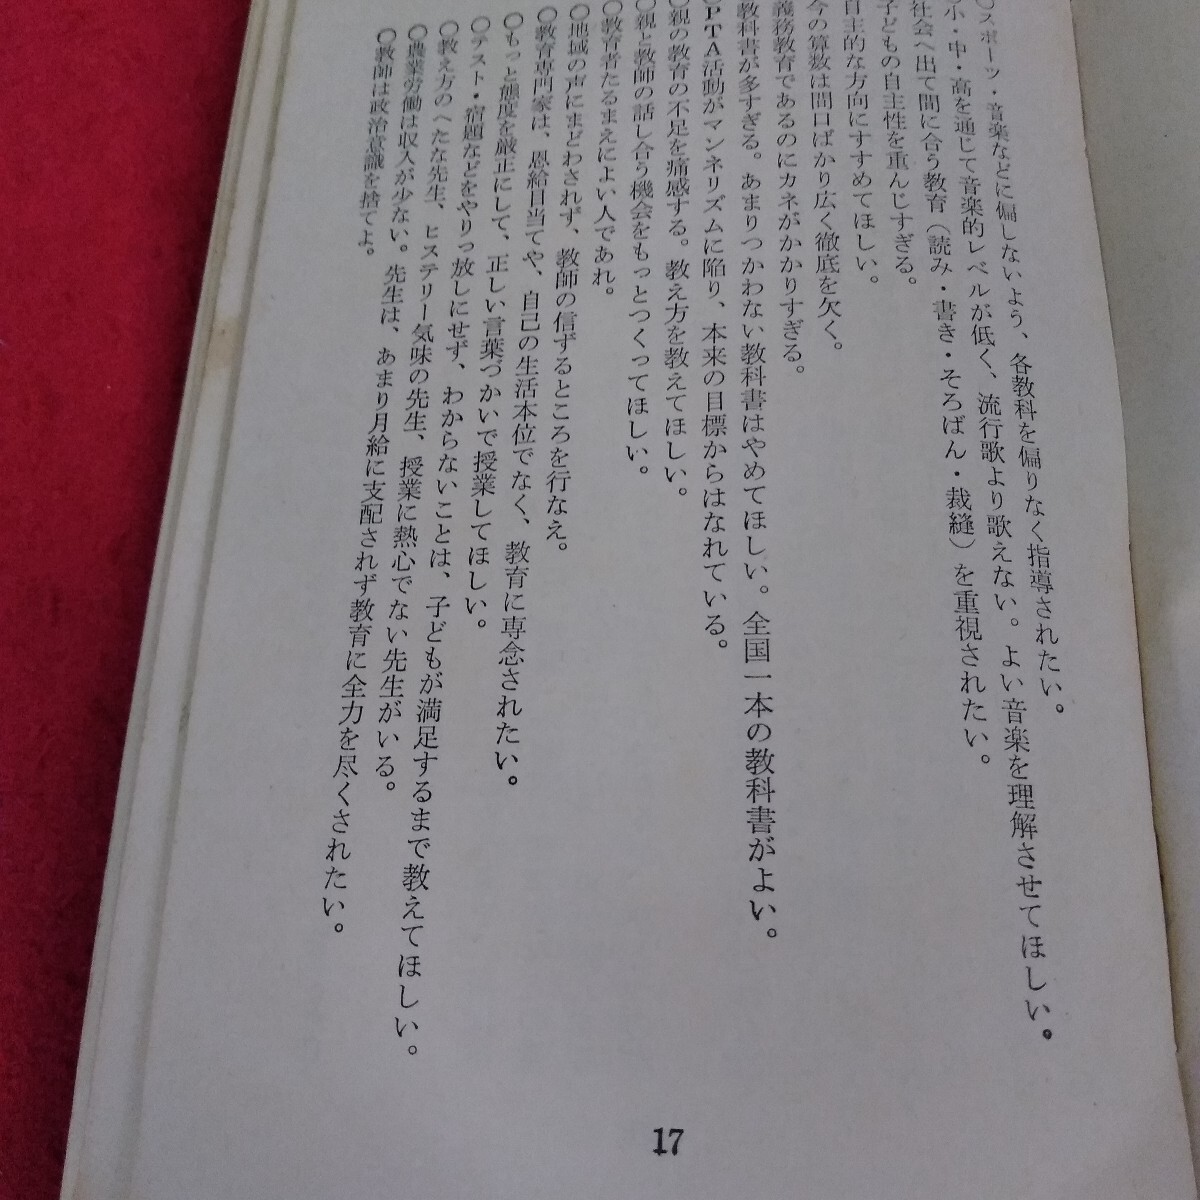 ○スポーツ・音楽などに偏しないよう、各教科を偏りなく指導されたい。
○小・中・高を通じて音楽的レベルが低く、流行歌より歌えない。よい音楽を理解させてほしい。
社会へ出て間に合う教育(読み・書き・そろばん・裁縫)を重視されたい。
子どもの自主性を重んじすぎる。
自主的な方向にすすめてほしい。
今の算数は間口ばかり広く徹底を欠く。
義務教育であるのにカネがかかりすぎる。
教科書が多すぎる。あまりつかわない教科書はやめてほしい。全国一本の教科書がよい。
○PTA活動がマンネリズムに陥り、本来の目標からはなれている。
○親の教育の不足を痛感する。教え方を教えてほしい。
○親と教師の話し合う機会をもっとつくってほしい。
○教育者たるまえによい人であれ。
○地域の声にまどわされず、教師の信ずるところを行なえ。
○教育専門家は、恩給目当てや、自己の生活本位でなく、教育に専念されたい。
○もっと態度を厳正にして、正しい言葉づかいで授業してほしい。
○テスト・宿題などをやりっ放しにせず、わからないことは、子どもが満足するまで教えてほしい。
○教え方のへたな先生、ヒステリー気味の先生、授業に熱心でない先生がいる。
○農業労働は収入が少ない。先生は、あまり月給に支配されず教育に全力を尽くされたい。
○教師は政治意識を捨てよ。
17